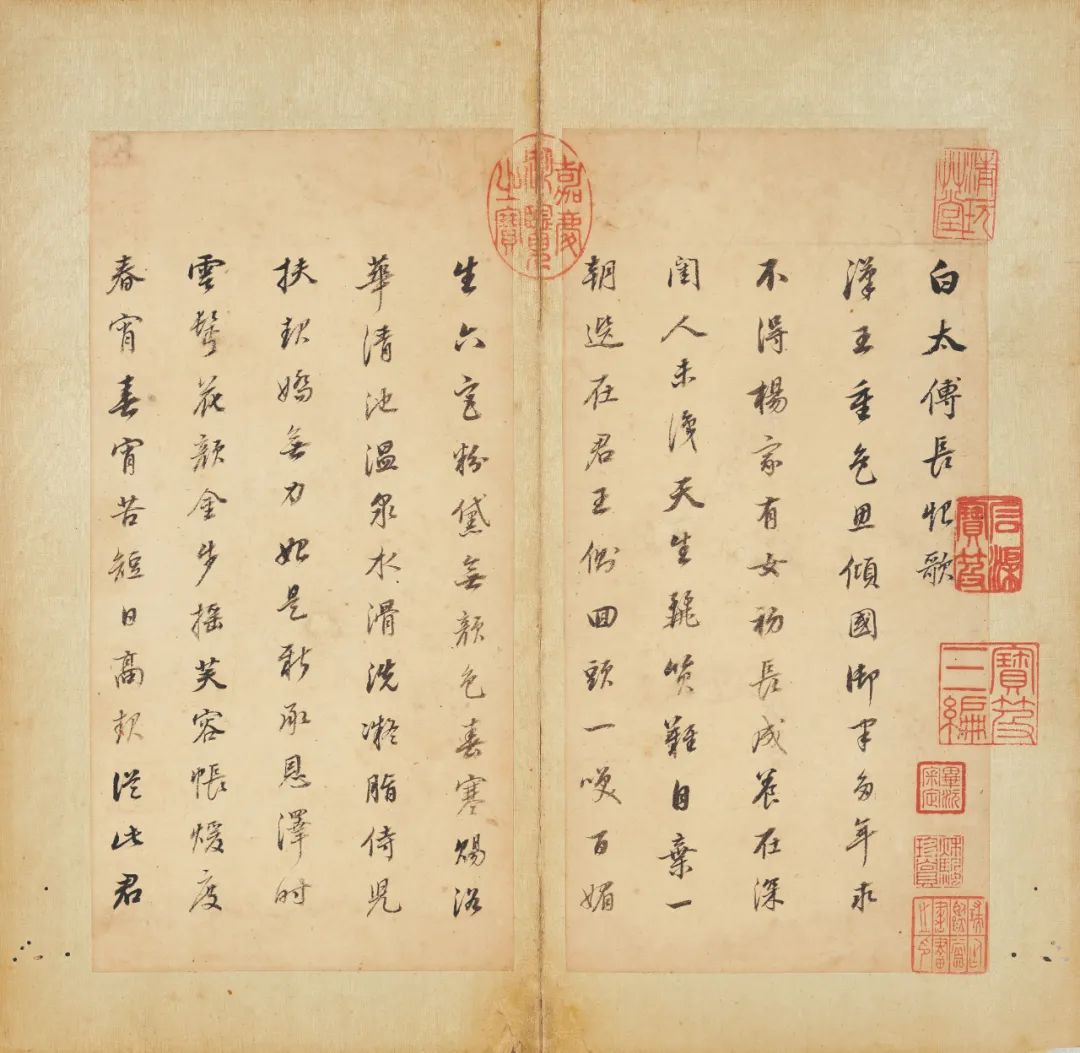 白太傅長恨歌
漢王重色思傾國御宇多年求
不得楊家有女初長成養在深
閨人未識天生麗質難自棄一
朝選在君王側囬頭一咲百媚
生六宮粉黛無顏色春寒賜浴
華清池溫泉水滑洗凝脂侍兒
扶起嬌無力始是新承恩澤時
雲鬢花顏金步搖芙容帳煖度
春宵春宵苦短日高起從此君
嘉慶御覽之寶
石渠寶笈
寶笈三編
畢沅審定